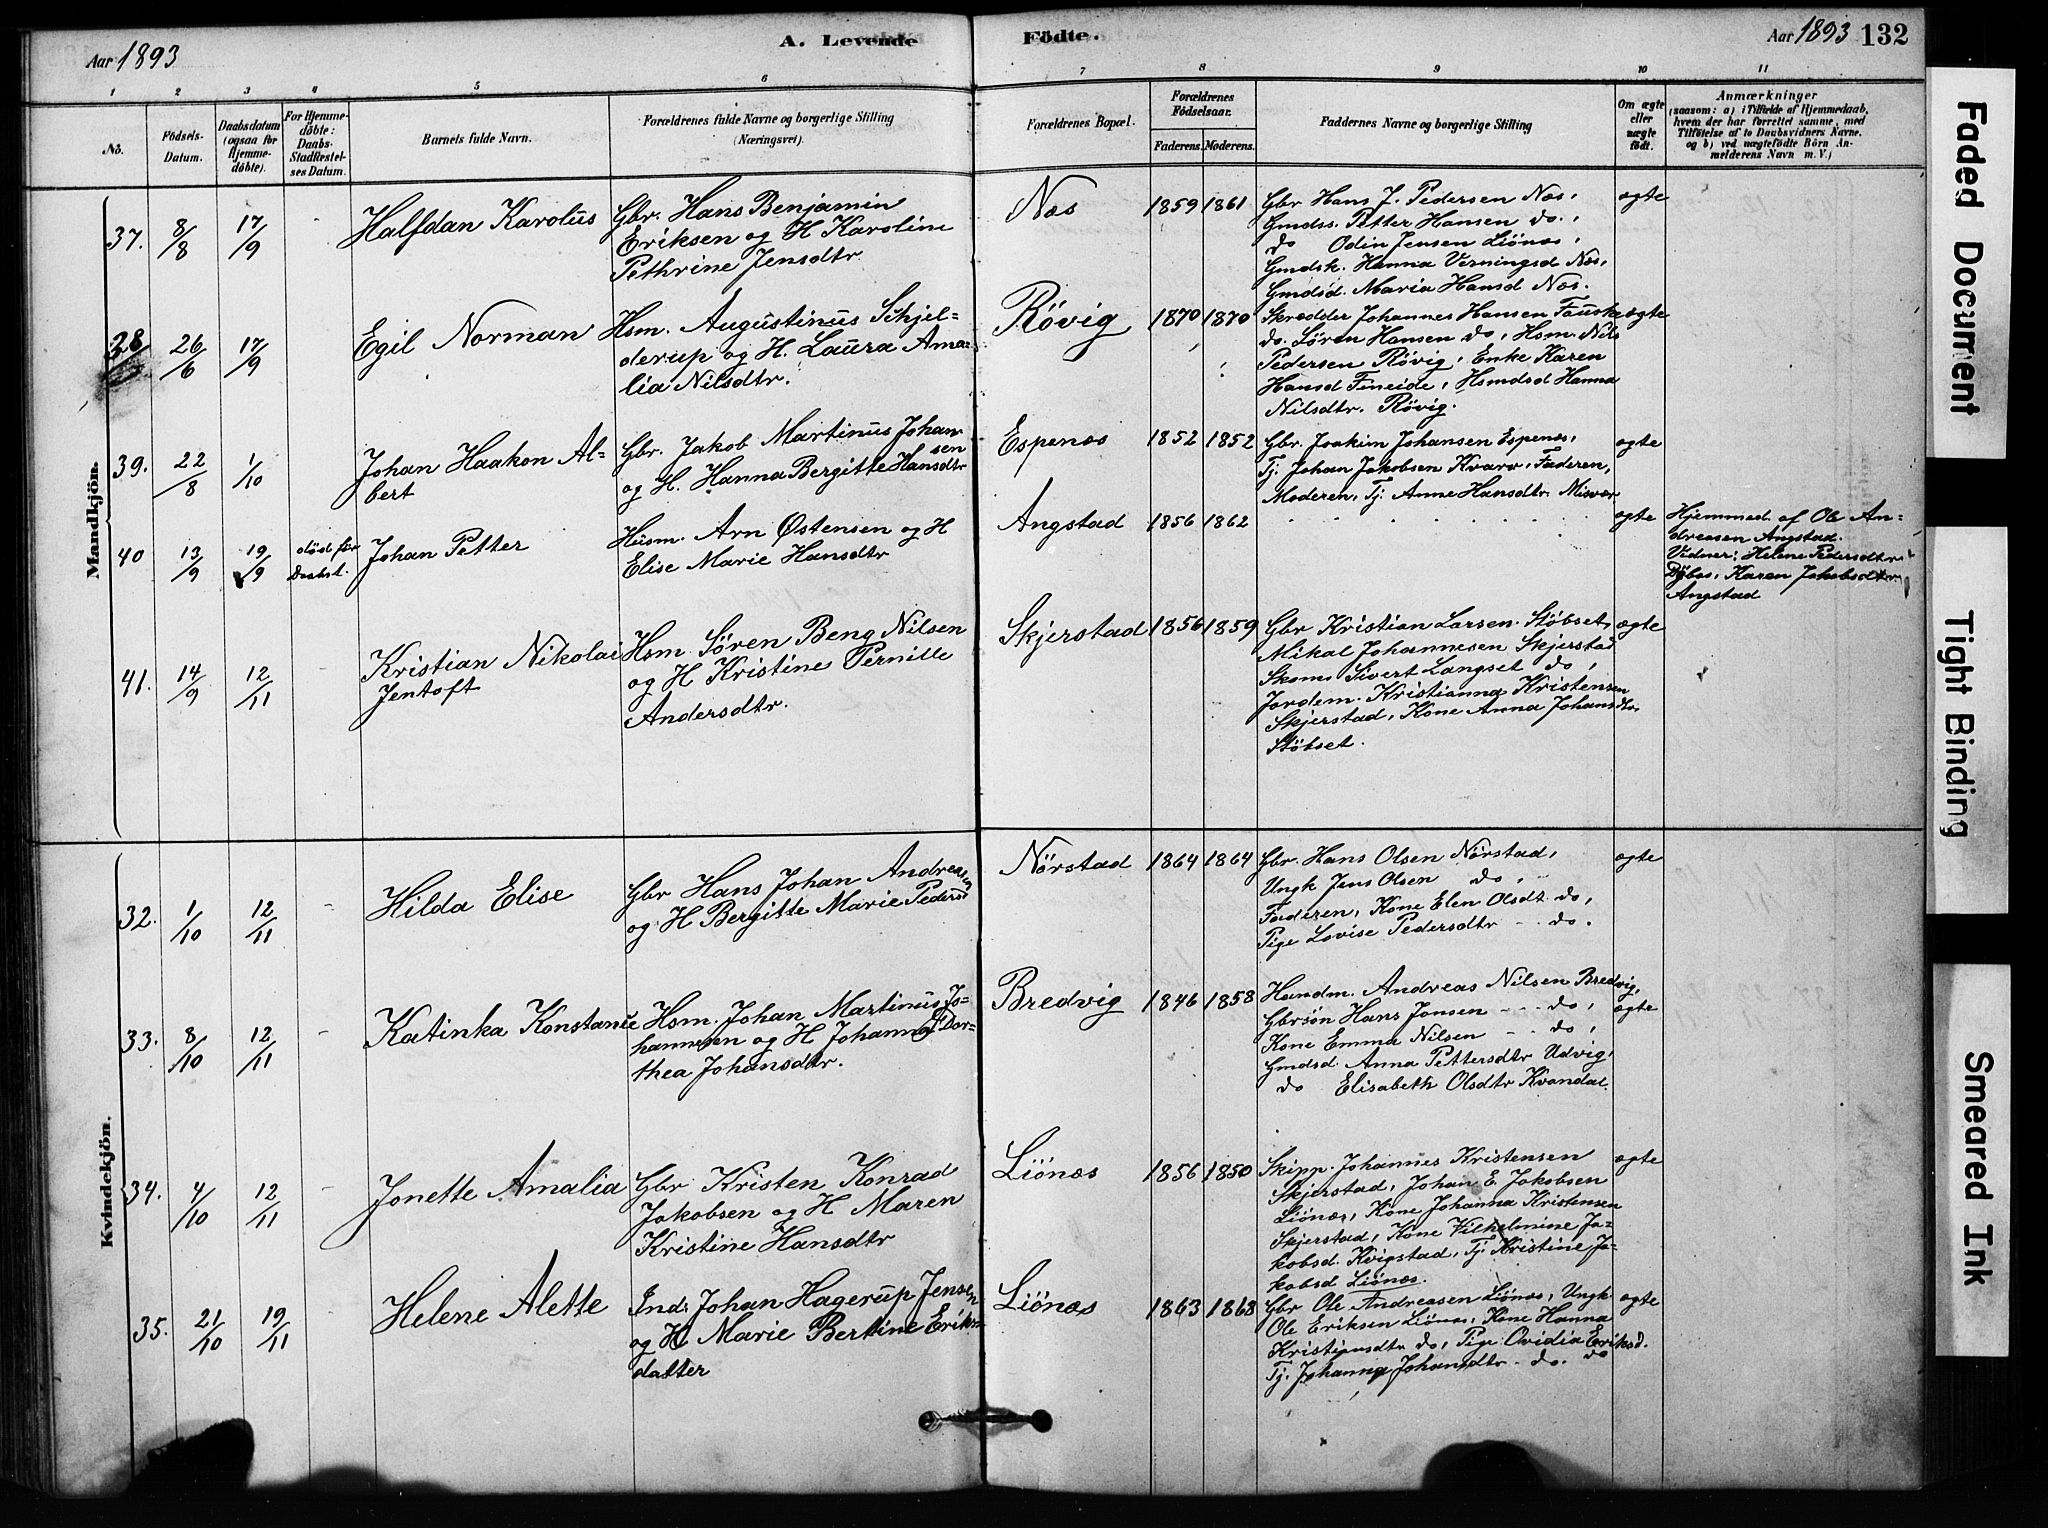 Aar 1893
A. Levende
Födte.
Aar 1893 132
1 2 3 4 5 6 7 8 9 10 11
No.
Födsels-
Datum.
Daabsdatum
(ogsaa for
Hjemme-
døbte).
For Hjemme-
døbte:
Daabs-
Stadfæstel-
ses Datum.
Barnets fulde Navn.
Forældrenes fulde Navne og borgerlige Stilling
(Næringsvei).
Forældrenes Bopæl.
Forældrenes
Födselsaar.
Faderens. Moderens.
Faddernes Navne og borgerlige Stilling
Om ægte
eller
uægte
født.
Anmærkninger
(saasom: a) i Tilfælde af Hjemmedaab,
hvem der har forrettet samme, med
Tilföielse af to Daabsvidners Navne.
og b) ved uægtefödte Börn An-
melderens Navn m. V.)
Mandkjön.
37. 8/8 17/9
Halfdan Karolus
Gbr. Hans Benjamin
Eriksen og H Karoline
Pethrine Jensdtr
Næs
1859 1861
Gbr Hans J. Pedersen Næs,
Gmdss. Petter Hansen do.,
do Odin Jensen Liönæs,
Gmdsk. Hanna Verningsd Næs,
Gmdsd. Maria Hansd Næs.
ægte
38 26/6 17/9
Egil Norman
Hsm. Augustinus Schjel-
derup og H. Laura Ama-
lia Nilsdtr.
Rövig
1870 1870
Skrædder Johannes Hansen Fauske
do. Sören Hansen do, Hsm. Nils
Pedersen Rövig, Enke Karen
Hansd Fineide, Hsmdsd Hanna
Nilsdtr. Rövig.
ægte
39. 22/8 1/10
Johan Haakon Al-
bert
Gbr. Jakob Martinus Johan-
sen
og H. Hanna Bergitte Hansdtr
Espenæs
1852 1852
Gbr. Joakim Johansen Espenæs,
Tj. Johan Jakobsen Kvarv, Faderen,
Moderen, Tj. Anne Hansdtr. Misvær
ægte
40 13/9 19/9
död för
Daabst.
Johan Petter
Husm. Arn Østensen og H
Elise Marie Hansdtr
Angstad
1856 1862
ægte
Hjemmed. af Ole An-
dreasen Angstad.
Vidner: Helene Pedersdtr
Karen Jakobsdtr
Angstad
41. 14/9 12/11
Kristian Nikolai
Jentoft
Hsm Sören Beng Nilsen
og H Kristine Pernille
Andersdtr.
Skjerstad
1856 1859
Gbr Kristian Larsen Stöbset,
Mikal Johannesen Skjerstad
Skom Sivert Langset do,
Jordem. Kristianna Kristensen
Skjerstad, Kone Anna Johansdtr.
Stöbset.
ægte
Kvindekjön.
32. 1/10 12/11
Hilda Elise
Gbr Hans Johan Andreasen
og H Bergitte Marie Pedersd
Nörstad
1864 1864
Gbr. Hans Olsen Nörstad,
Ungk Jens Olsen do,
Faderen, Kone Elen Olsdt do,
Pige Lovise Pedersdtr do.
ægte
33. 8/10 12/11
Katinka Konstance
Hsm. Johan Martinus Jo-
hannesen og H Johanna Dor-
thea Johansdtr.
Bredvig
1846 1858
Handm. Andreas Nilsen Bredvig,
Gbrsön Hans Jonsen do,
Kone Emma Nilsen do,
Gmdsd. Anna Pettersdtr Udvig,
do Elisabeth Olsdtr Kvandal.
ægte
34. 4/10 12/11
Jonette Amalia
Gbr Kristen Konrad
Jakobsen og H Maren
Kristine Hansdtr
Liönæs
1856 1850
Skipp. Johannes Kristensen
Skjerstad, Johan E. Jakobsen
Liönæs, Kone Johanna Kristensen
Skjerstad, Kone Vilhelmine Ja-
kobsd. Kvigstad, Tj. Kristine Ja-
kobsd Liönæs.
ægte
35. 21/10 19/11
Helene Alette
Ind: Johan Hagerup Jensen
og H Marie Bertine Eriks-
datter
Liönæs
1863 1868
Gbr Ole Andreasen Liönæs, Ungk
Ole Eriksen Liönæs, Kone Hanna
Kristiansdtr do, Pige Ovidia Eriksd.
Tj. Johanna Johansdtr do. do
ægte
Faded Document
Tight Binding
Smeared Ink